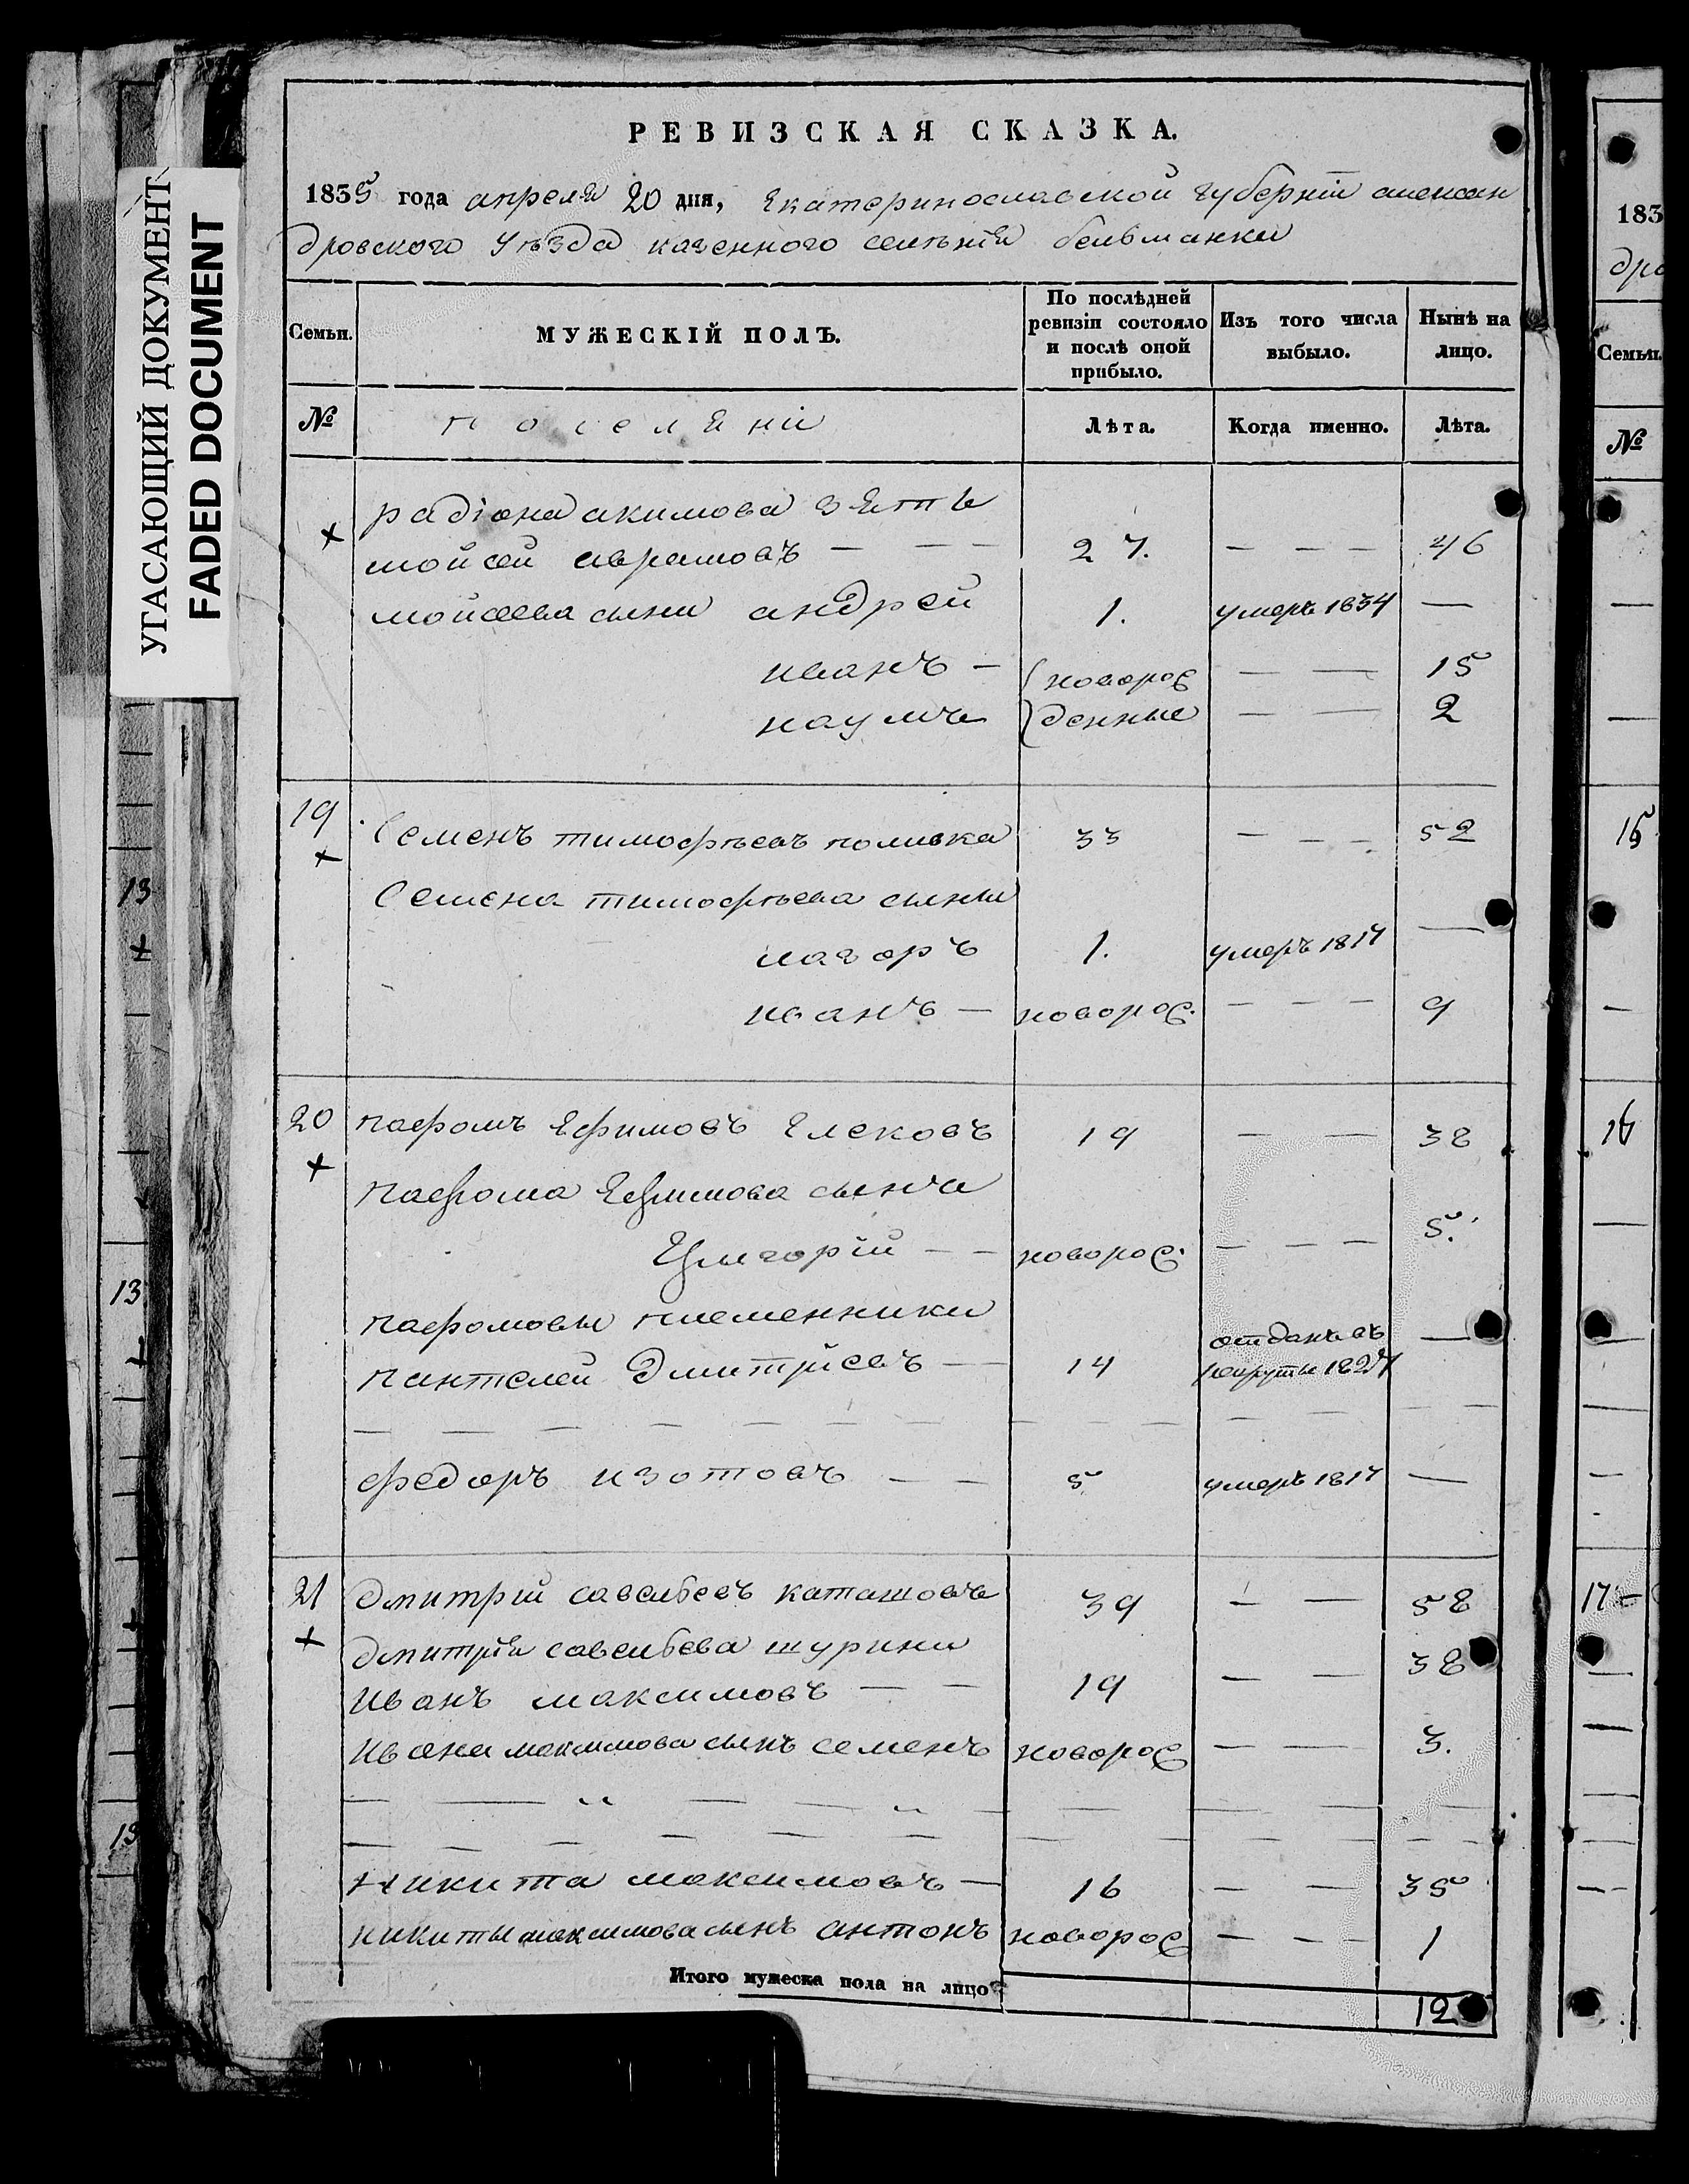 УГАСАЮЩИЙ ДОКУМЕНТ
FADED DOCUMENT
РЕВИЗСКАЯ СКАЗКА.
1835 года апреля 20 дня, Екатеринославской губернiи алексан
дровского уѣзда казенного селѣния бельманки
Семьи.
МУЖЕСКІЙ ПОЛЪ.
По послѣдней ревизіи состояло и послѣ оной прибыло.
Изъ того числа выбыло.
Нынѣ на лицо.
№
поселяни
Лѣта.
Когда именно.
Лѣта.
радіона акимова зять
+ мойсей аврамовъ — — — 27. — — — 46
мойсеева сыни андрей 1. умеръ 1834 —
иванъ — новорож — — 15
наумъ денные — — 2
19 Семенъ тимофѣевъ поливка 33 — — — 52
+
Семена тимофѣева сыны
лагоръ 1. умеръ 1817 —
иванъ — новорож. — — — 9
20 пафомъ Ефимовъ Елековъ 19 — — 38
+
пафома Ефимова сынъ
григорій — — новорож. — — — 5.
пафомовы племенники
пантелей Дмитріевъ — 14 отданъ въ рекруты 1827 —
федоръ изотовъ — — 5 умеръ 1817 —
21 Дмитрій савельевъ каташовъ 39 — — 58
+
Дмитрія савельева шурини
Иванъ максимовъ — — 19 — — 38
Ивана максимова сынъ семенъ новорож — — 3.
Никита максимовъ — 16 — — 35
никиты максимова сынъ антонъ новорож — — — 1
Итого мужеска пола на лицо 12
183
дро
Семьи.
№
15
16
17
13
+
13
+
13